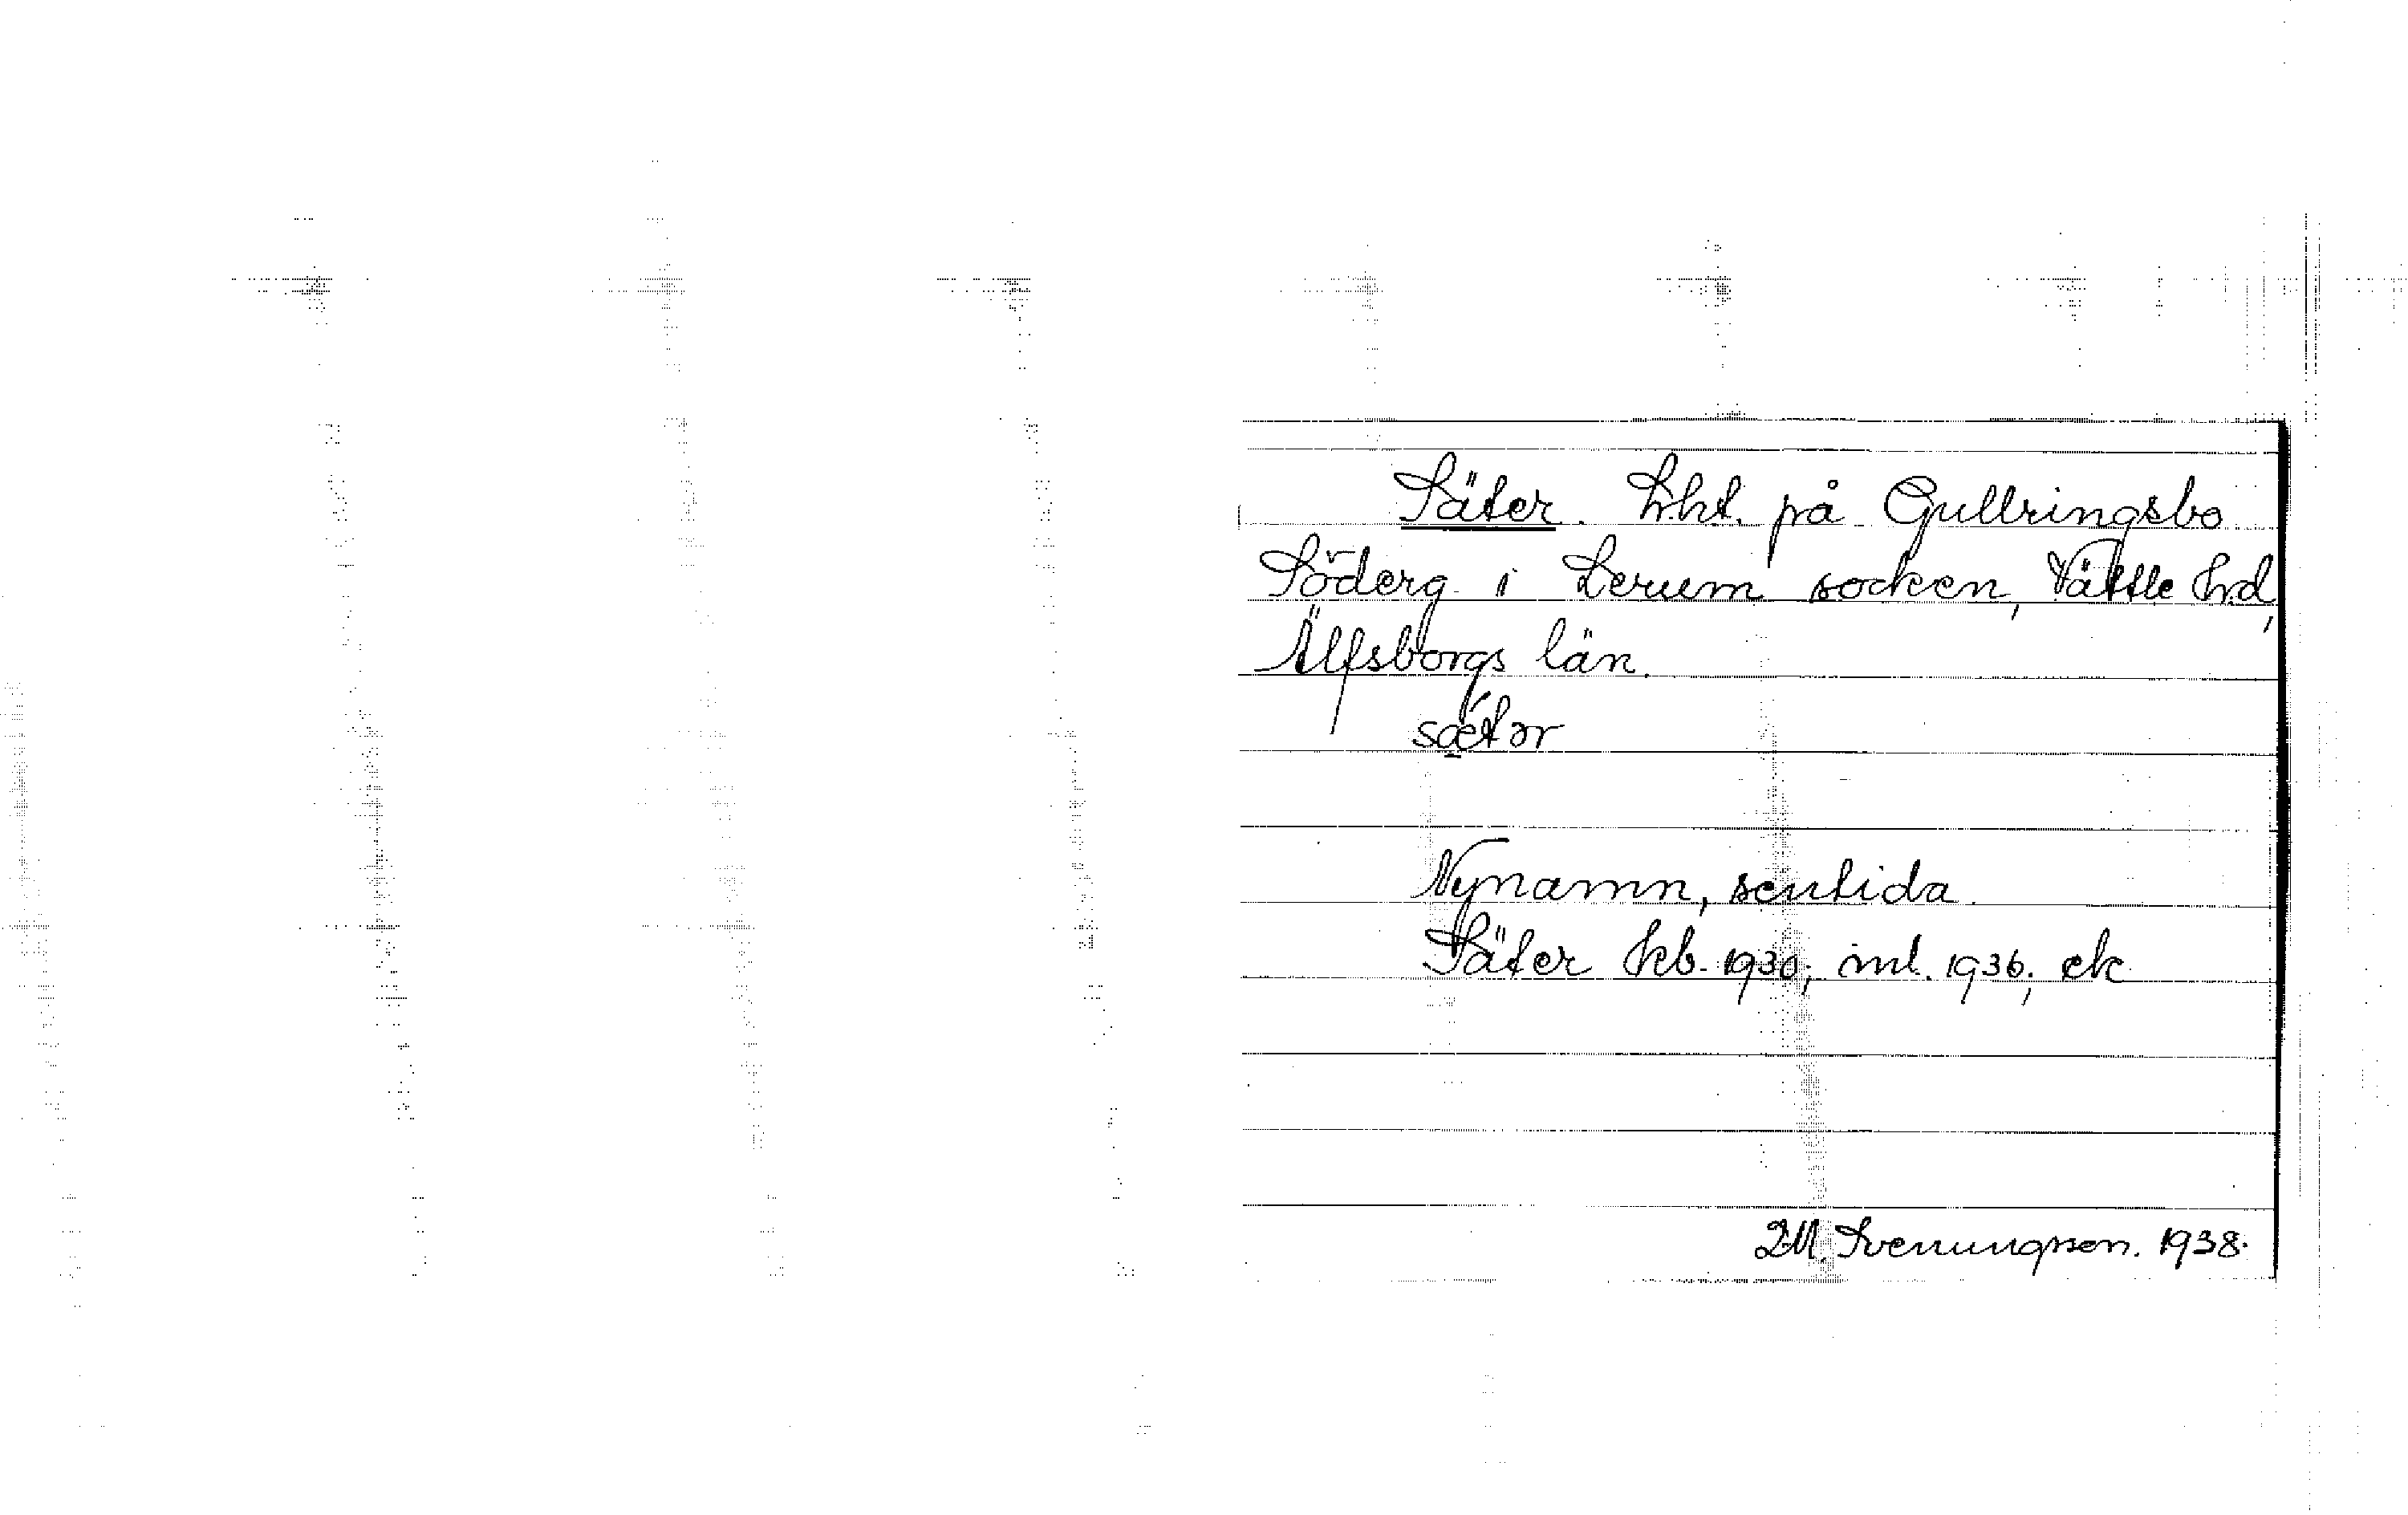 Säter. Lht. på Gullringsbo
Söderg. i Lerum socken, Vättle hd,
Älfsborgs län.
sǽtər
Nynamn, sentida.
Säter kb. 1930; ml. 1936; ek
D.M. Svenungsson. 1938.